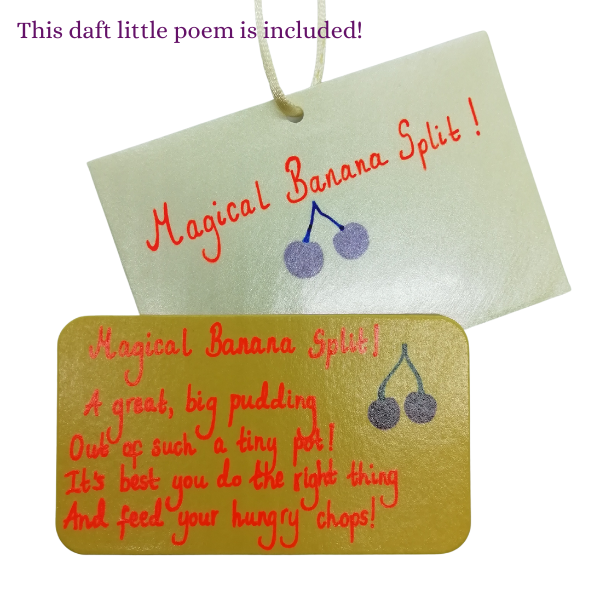 This daft little poem is included!
Magical Banana Split!
Magical Banana Split!
A great, big pudding
Out of such a tiny pot!
It's best you do the right thing
And feed your hungry chops!